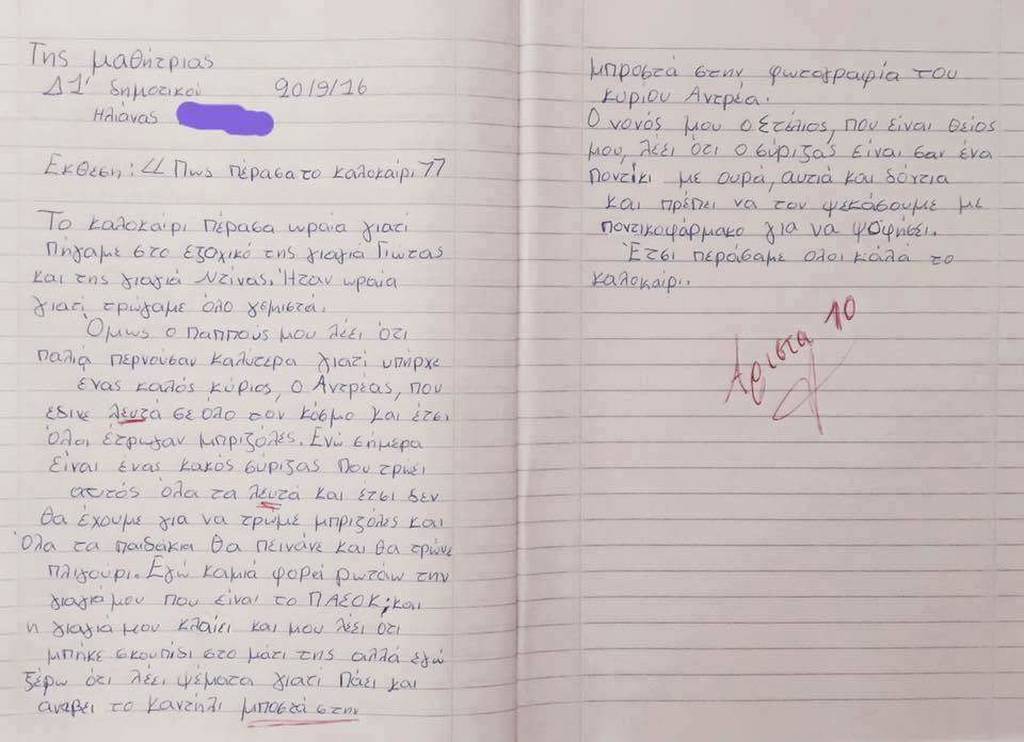 Της μαθήτριας
Δ1' δημοτικού 20/9/16
Ηλιάνας
Εκθεση: << Πως πέρασα το καλοκαίρι >>
Το καλοκαίρι πέρασα ωραία γιατί
πήγαμε στο εξοχικό της γιαγιά Γιωτας
και της γιαγιά Ντίνας. Ήταν ωραία
γιατί τρώγαμε όλο γεμιστά.
Όμως ο παππούς μου λέει ότι
παλιά περνούσαν καλύτερα γιατί υπήρχε
ένας καλός κύριος, ο Αντρέας, που
έδινε λευτά σε όλο τον κόσμο και έτσι
όλοι έτρωγαν μπριζόλες. Ενώ σήμερα
είναι ένας κακός σύριζας που τρώει
αυτός όλα τα λευτά και έτσι δεν
θα έχουμε για να τρώμε μπριζόλες και
όλα τα παιδάκια θα πεινάνε και θα τρώνε
πλιγούρι. Εγώ καμιά φορεί ρωτάω την
γιαγιά μου που είναι το ΠΑΣΟΚ; και
η γιαγιά μου κλαίει και μου λέει ότι
μπήκε σκουπίδι στο μάτι της αλλά εγώ
ξέρω ότι λέει ψέματα γιατί πάει και
ανάβει το καντήλι μποστά στην
μπροστά στην φωτογραφία του
κύριου Αντρέα.
Ο νονός μου ο Στέλιος, που είναι θείος
μου, λέει ότι ο σύριζας είναι σαν ένα
ποντίκι με ουρά, αυτιά και δόντια
και πρέπει να τον ψεκάσουμε με
ποντικοφάρμακο για να ψοφήσει.
Έτσι περάσαμε όλοι καλά το
καλοκαίρι.
Αριστα 10